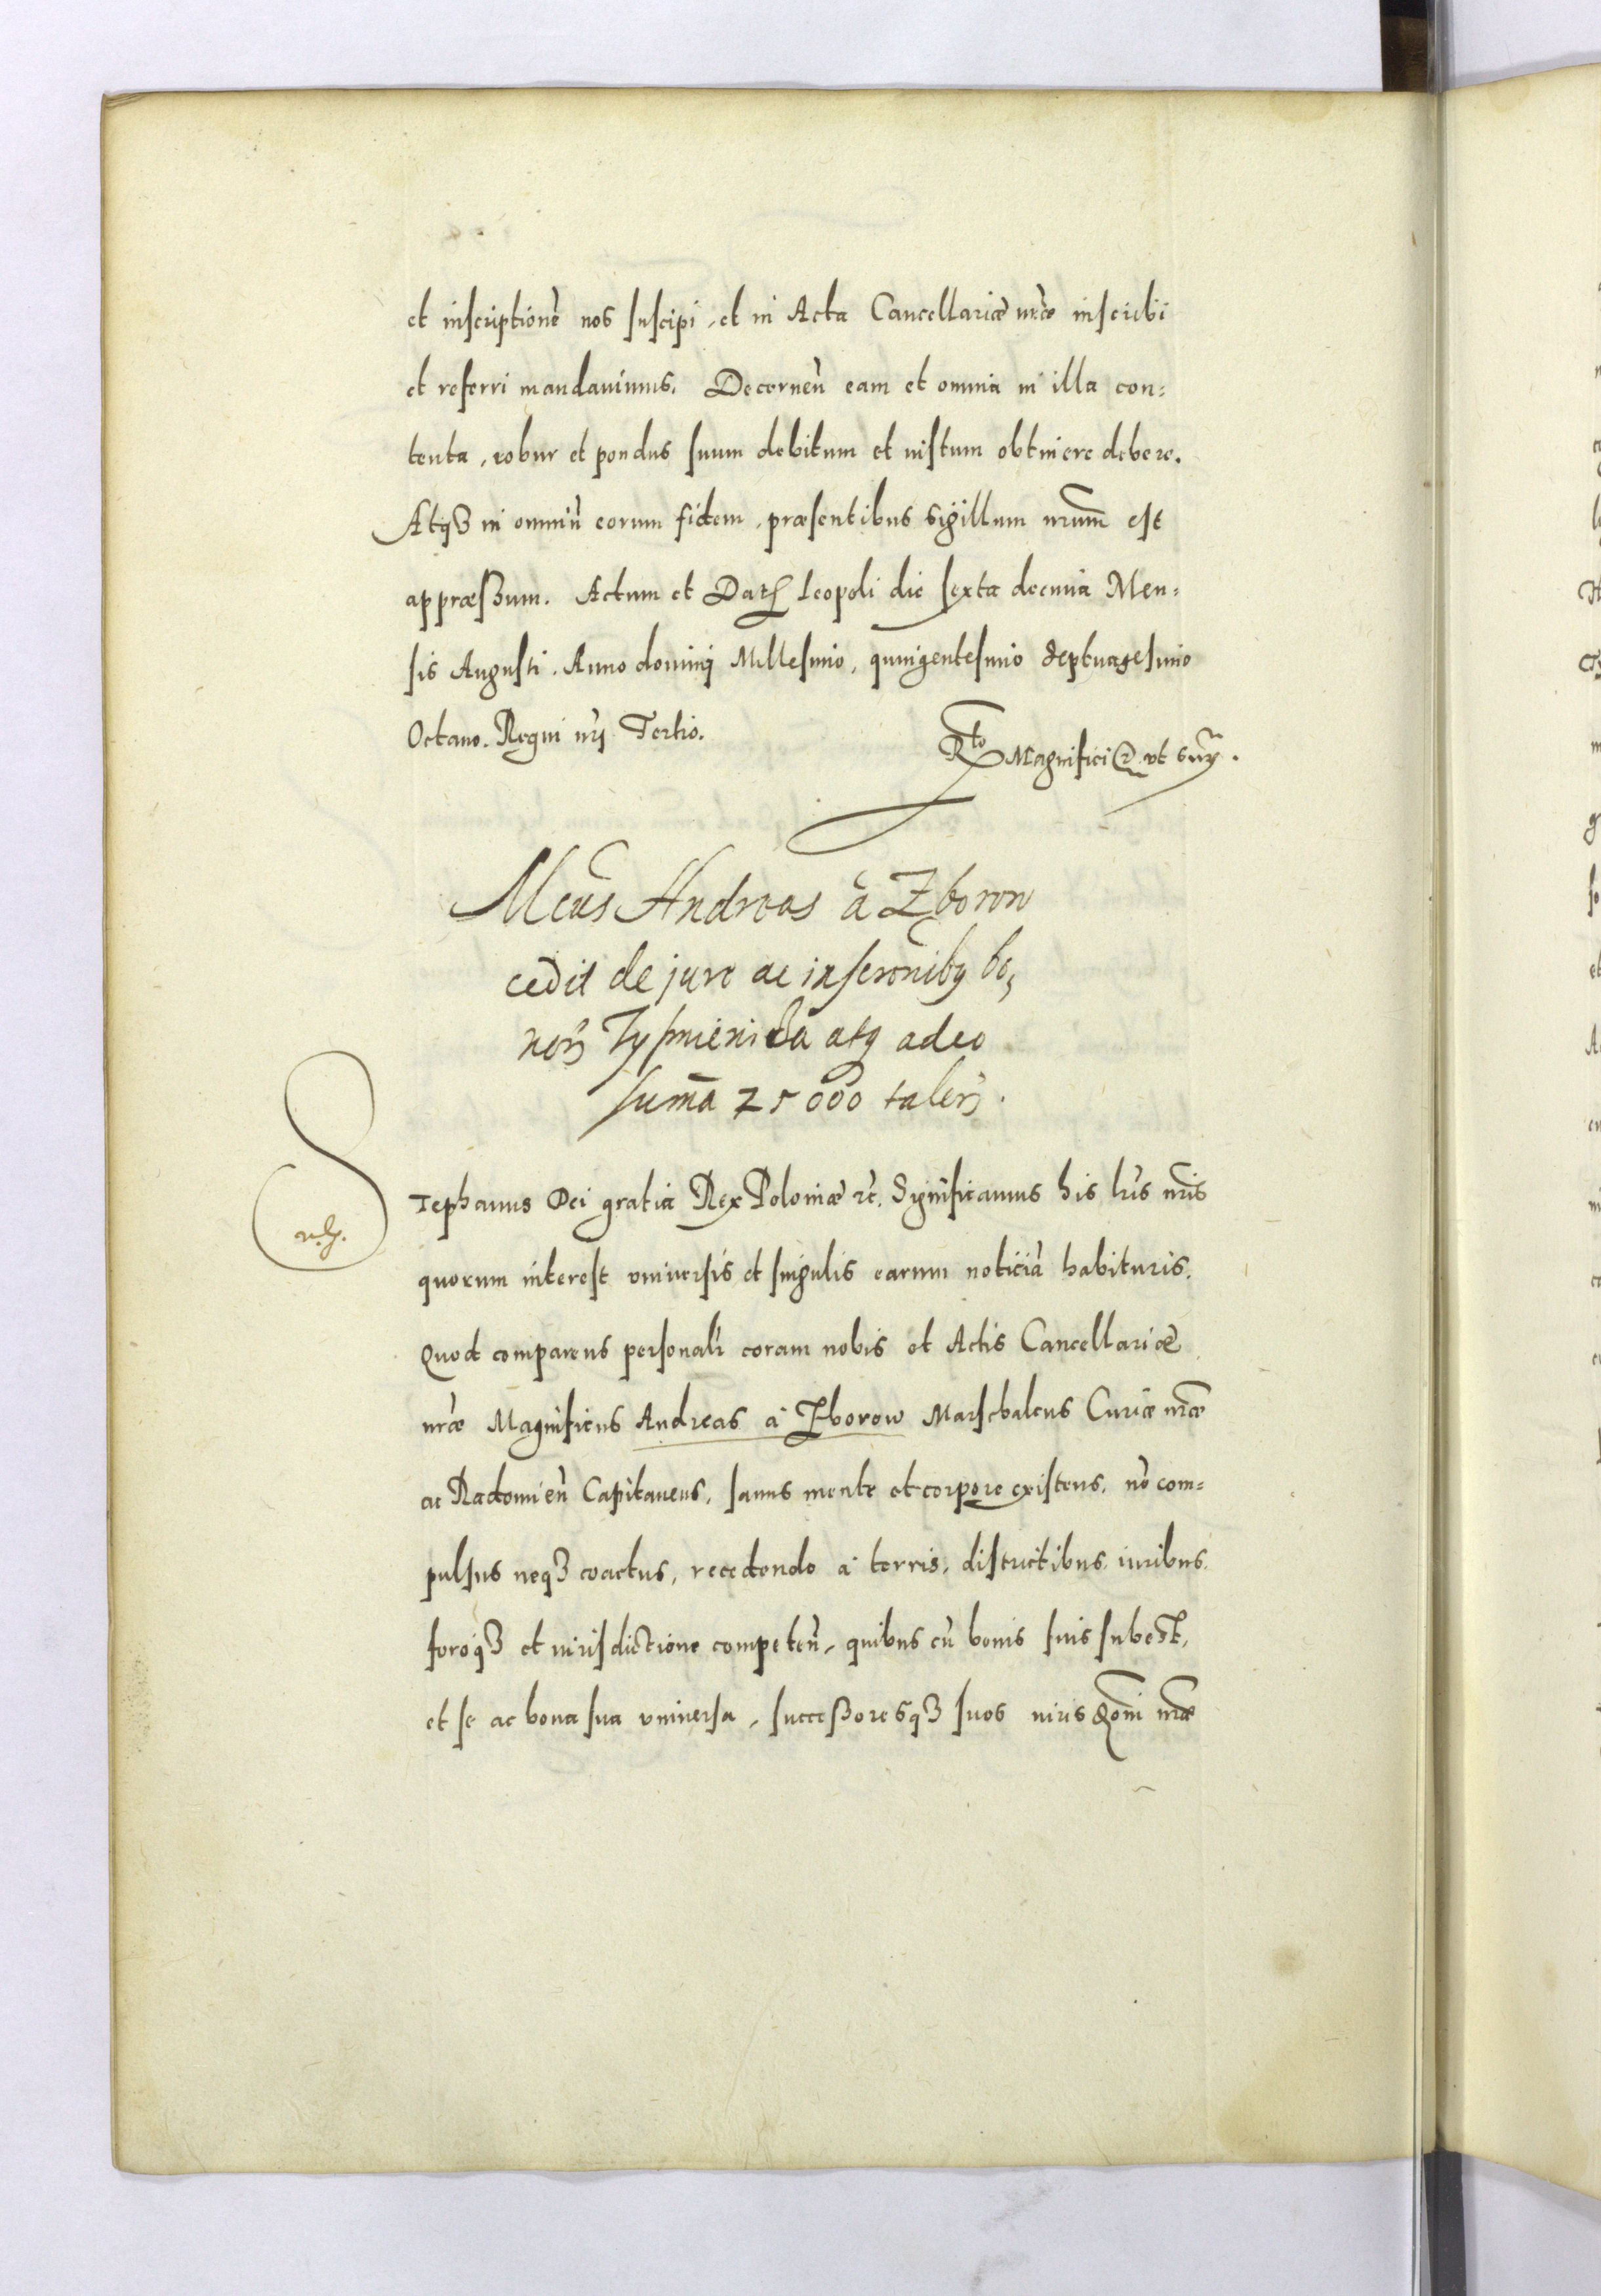 et inscriptionẽ nos suscipi, et in Acta Cancellariæ nr̃æ inscribi
et referri mandavimus. Decernen̄ eam et omnia in illa con=
tenta, robur et pondus suum debitum et iustum obtinere debere.
Atqȝ in omniū eorum fidem, præsentibus sigillum nr̃um est
appræssum. Actum et Dat Leopoli die sexta decima Men=
sis Augusti. Anno domini Millesimo, quingentesimo Septuagesimo
Octavo. Regni nr̃i Tertio.
R^to Magnifici ut supr̃.
Mcus Andreas à Zborow
cedit de jure ac inscronibq bo=
norȝ Tysmienicza atq adeo
sum̄a 25000 talerȝ.
Stephanus Dei gratia Rex Poloniæ etc. Significamus his lr̃is nr̃is
quorum interest universis et singulis earum noticiā habituris.
Quod comparens personalr̃ coram nobis et Actis Cancellariæ
nr̃æ Magnificus Andreas à Zborow Marschalcus Curiæ nr̃æ
ac Radomien̄ Capitaneus, sanus mente et corpore existens, nō com=
pulsus neqȝ coactus, recedendo à terris, districtibus, iuribus,
foroqȝ et iurisdictione competen̄, quibus cū bonis suis subest,
et se ac bona sua universa, successoresqȝ suos iurisdōni nr̃æ